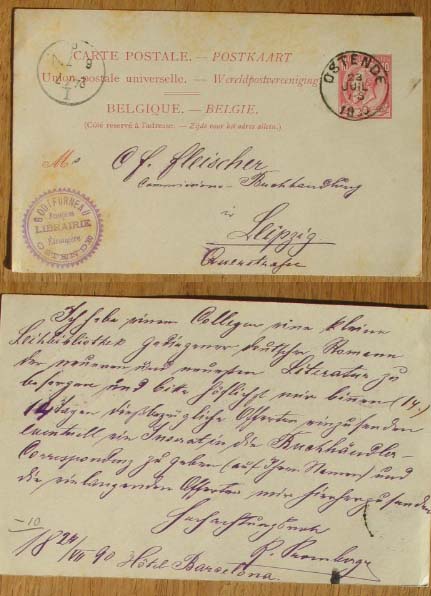 CARTE POSTALE. — POSTKAART
Union postale universelle. — Wereldpostvereeniging
BELGIQUE. — BELGIE.
(Côté reservé à l'adresse. — Zijde voor het adres alleen.)
OSTENDE
23
JUIL
M
C. f. fleischer
Commissions-Buchhandlung
in
Leipzig
Querstrasse
LIBRAIRIE
Etrangère
OSTENDE
Ich habe einen Collegen eine kleine
Leihbibliothek gediegener deutscher Romane
der neueren und neuesten Literatur zu
besorgen und bitte höflichst mir binnen (14.)
14 Tagen diesbezügliche Offerten einzusenden
eventuell ein Inserat in die Buchhändler-
Correspondenz zu geben (auf Ihren Namen) und
die einlangenden Offerten mir hierher zu senden
Hochachtungsvoll
R. Promberger
18 24/VII 90 Hôtel Barcelona.